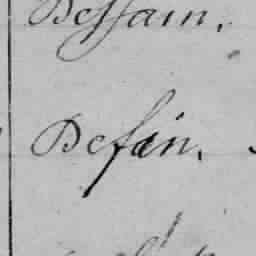 Dessain.
Defin.